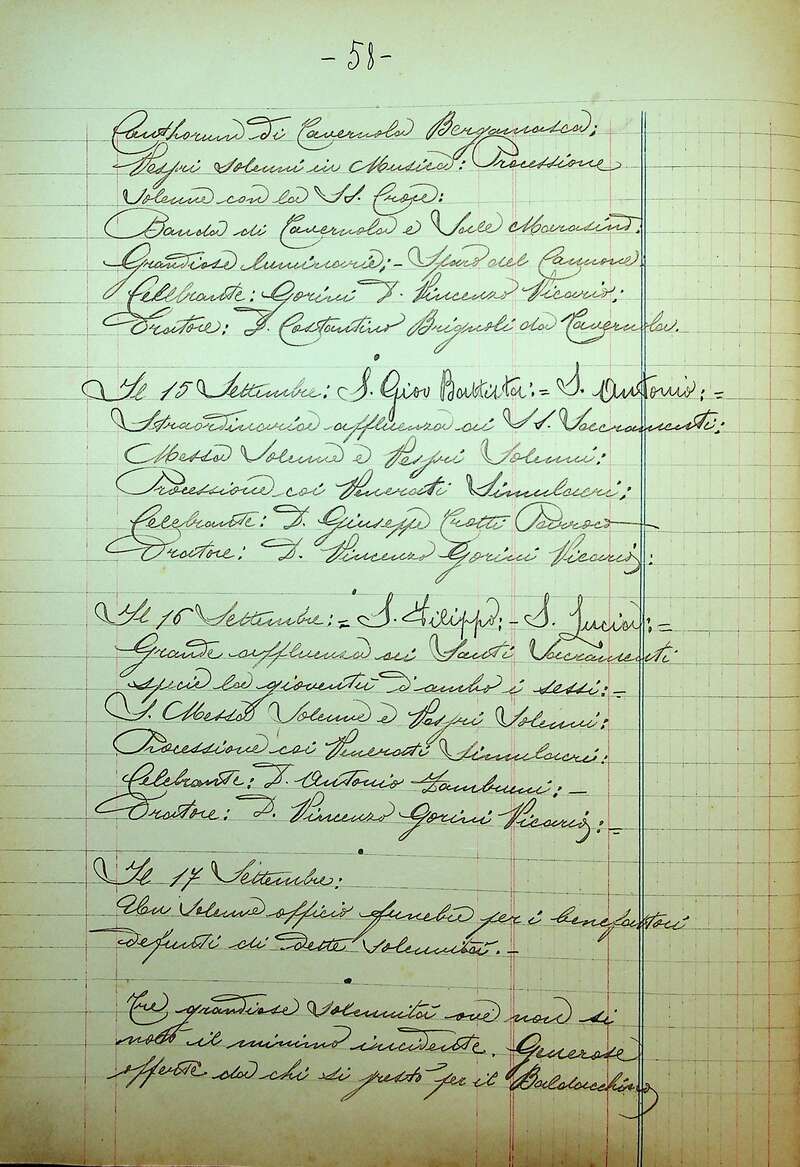 - 58 -
Canthorum di Tavernola Bergamasca;
Vespri Solenni in Musica: Processione
Solenne con la SS. Croce:
Banda di Tavernola e Sale Marasino:
Grandiose luminarie; - Sparo del Cannone:
Celebrante: Gorini D. Vincenzo Vicario;
Oratore: D. Costantino Brignoli da Tavernola.
Il 15 Settembre: S. Giov Battista: = S. Antonio: =
Straordinaria affluenza ai SS. Sacramenti;
Messa Solenne e Vespri Solenni:
Processione coi Venerati Simulacri;
Celebrante: D. Giuseppe Trotti Parroco
Oratore: D. Vincenzo Gorini Vicario:
Il 16 Settembre: = S. Filippo: - S. Lucia: =
Grande affluenza ai Santi Sacramenti
specie la gioventù d'ambo i sessi: =
S. Messa Solenne e Vespri Solenni:
Processione coi Venerati Simulacri:
Celebrante: D. Antonio Zambuni: -
Oratore: D. Vincenzo Gorini Vicario: =
Il 17 Settembre:
Un Solenne officio funebre per i benefattori
defunti di dette solennità. -
Tre grandiose solennità ove non si
notò il minimo incidente. Generose
offerte da chi si prestò per il Baldacchino